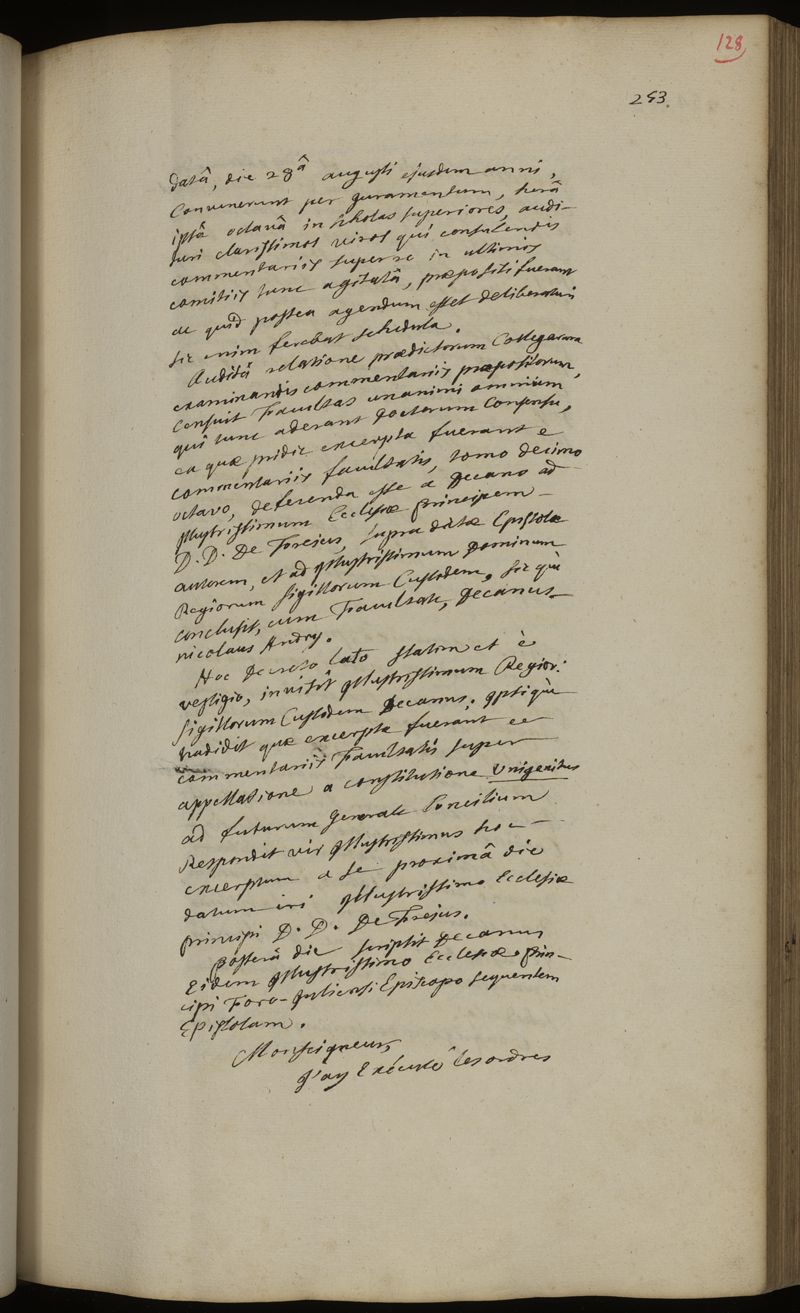 128
253.
datâ, die 28â augusti ejusdem anni,
Convenerunt per juramentum, horâ
ipsâ octavâ in scholas superiores, audi-
turi clarissimos viros qui consulendis
commentariis super re in ultimis
comitiis tunc agitatâ, præpositi fuerant
ac quid postea agendum esset deliberaturi
sic enim ferebat schedula.
Auditâ relatione prædictorum Collegarum
examinandis commentariis præpositorum,
Censuit Facultas unanimi omnium
qui tunc aderant Doctorum Consensu,
ea quæ pridie excerpta fuerant e
commentariis facultatis, tomo decimo
octavo, deferenda esse a Decano ad
illustrissimum Ecclesiæ principem
D. D. De Frejus, supra dictæ Epistolæ
autorem, et ad illustrissimum Dominum
Regiorum sigillorum Custodem, sic què
conclusit, cum Facultate, Decanus
nicolaus Andry.
Hoc Decreto lato statim et è
vestigio, invisit illustrissimum Regior.
sigillorum Custodem Decanus; ipsique
tradidit quæ excerpta fuerant ex
commentariis Facultatis super
appellatione a constitutione Unigenitus
ad futurum generale Concilium
Respondit vir illustrissimus hoc
excerptum a se proximâ die
datum iri illustrissimo Ecclesiæ
principi D. D. De Frejus.
posterâ die scripsit Decanus
Eidem illustrissimo Ecclesiæ prin-
cipi Foro-Juliensi Episcopo sequentem
Epistolam.
Monseigneur,
J'ay Exécuté les ordres